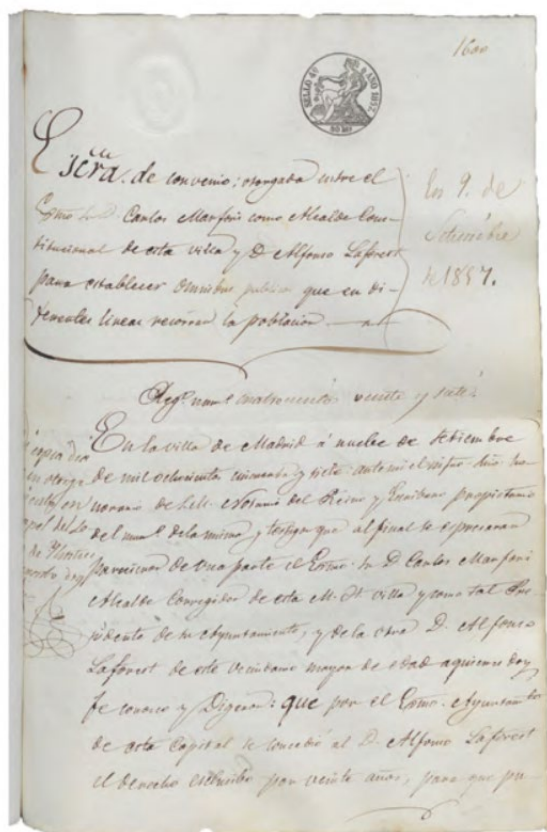 1600
SELLO 4º AÑO 1857.
Escra. de convenio: otorgada entre el
Exmo Sr. D. Carlos Marfori como Alcalde Cons-
titucional de esta villa y D Alfonso Laforest
para establecer Omnibus publicos que en di-
ferentes lineas recorran la poblacion
En 9. de
Setiembre
de 1857.
num.º cuatrocientos veinte y siete
En la villa de Madrid á nueve de Setiembre
de mil ochocientos cincuenta y siete: ante mi el infro. Ssno. ho-
norario de S.M. Notario del Reino y Escribano propietario
del num.º de la misma y testigos que al final se espresaran
parecieron de una parte el Exmo. Sr D. Carlos Marfori
Alcalde Corregidor de esta M. H. villa y como tal Pre-
sidente de su Ayuntamiento, y de la otra D. Alfonso
Laforest de este vecindario mayor de edad a quienes doy
fe conozco y Digeron: que por el Exmo. Ayuntamto
de esta Capital se concedió al D. Alfonso Laforest
el derecho esclusivo por veinte años, para que pu-